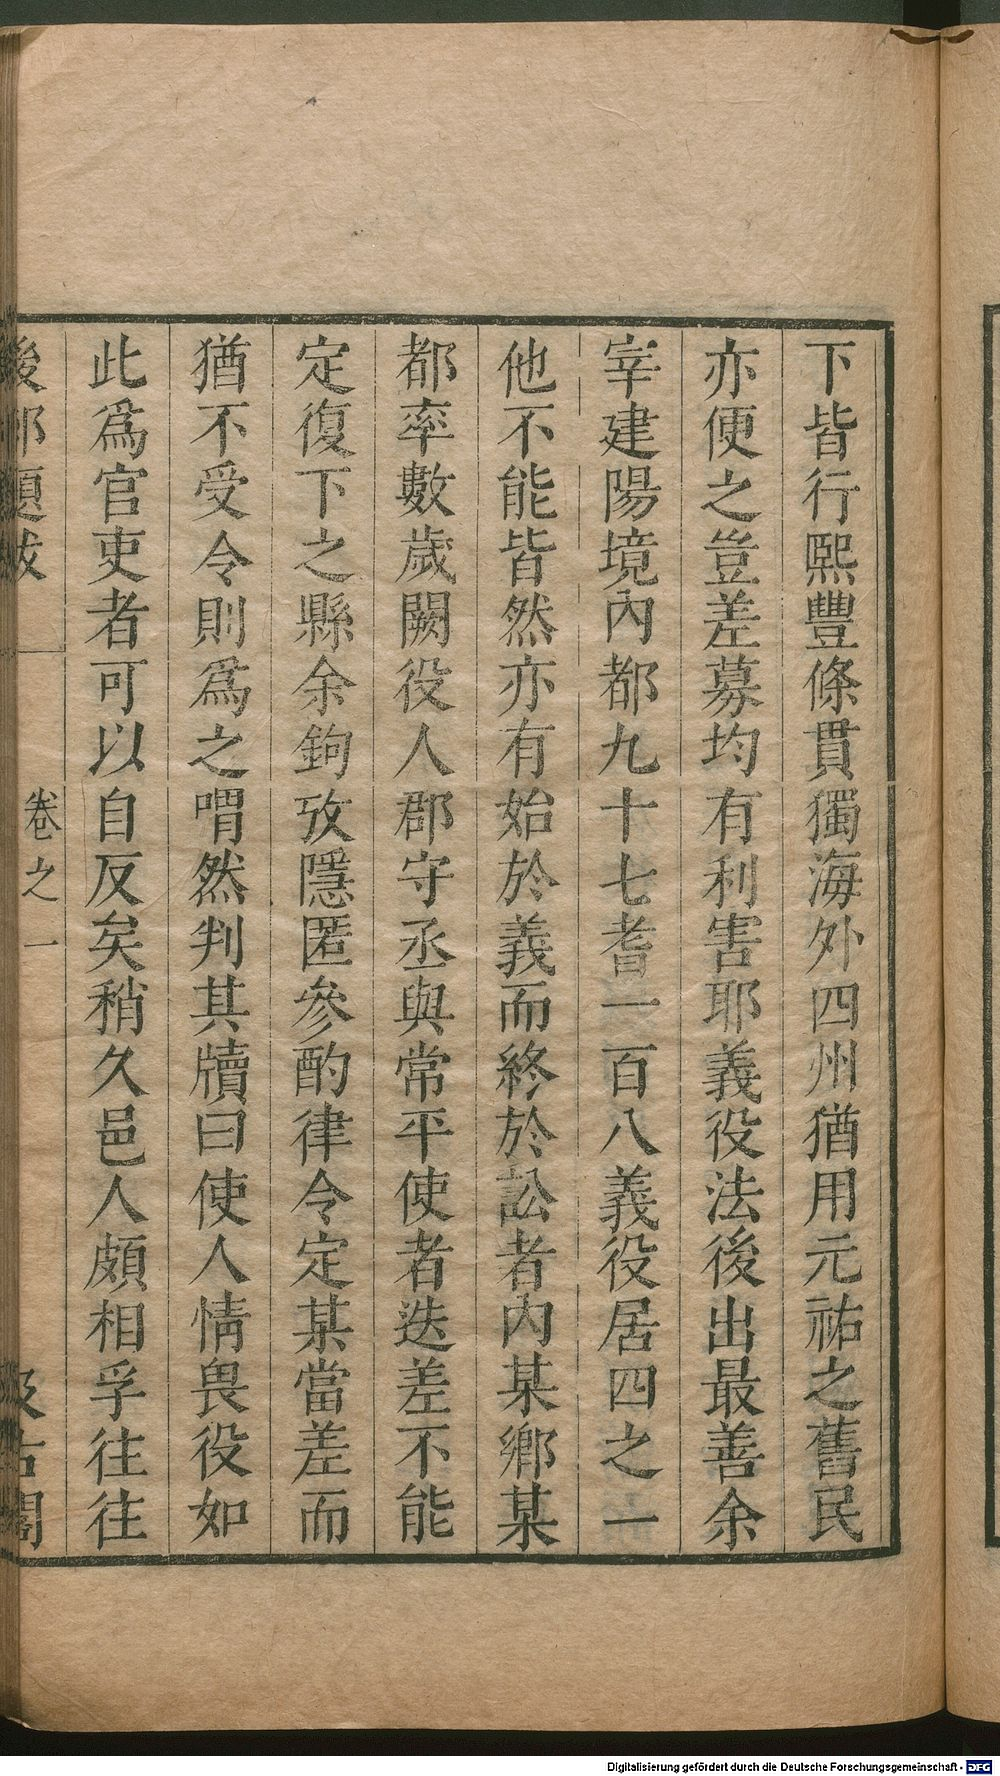 下皆行熙豐條貫獨海外四州猶用元祐之舊民
亦便之豈差募均有利害耶義役法後出最善余
宰建陽境內都九十七耆一百八義役居四之一
他不能皆然亦有始於義而終於訟者內某鄉某
都率數歲闕役人郡守丞與常平使者迭差不能
定復下之縣余鉤攷隱匿參酌律令定某當差而
猶不受令則爲之喟然判其牘曰使人情畏役如
此爲官吏者可以自反矣稍久邑人頗相孚往往
後邨題跋 卷之一 汲古閣
Digitalisierung gefördert durch die Deutsche Forschungsgemeinschaft - DFG